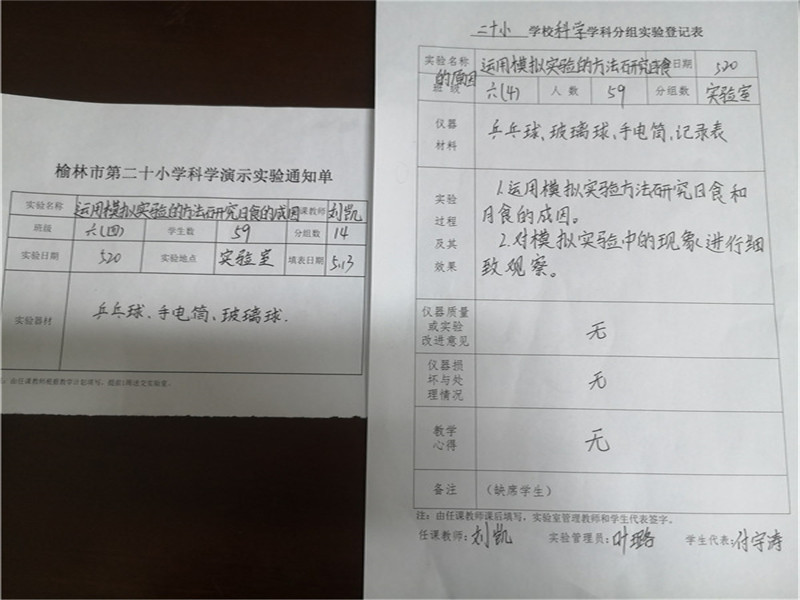 榆林市第二十小学科学演示实验通知单
实验名称 运用模拟实验的方法研究日食的成因 课教师 刘凯
班级 六(四) 学生数 59 分组数 14
实验日期 5.20 实验地点 实验室 填表日期 5.13
实验器材 乒乓球、手电筒、玻璃球.
由任课教师根据教学计划填写，提前1周送交实验室。
二十小 学校科学学科分组实验登记表
实验名称 运用模拟实验的方法研究日食的原因 日期 5.20
班级 六(4) 人数 59 分组数 实验室
仪器材料 乒乓球、玻璃球、手电筒、记录表
实验过程及其效果
1.运用模拟实验方法研究日食和
月食的成因。
2.对模拟实验中的现象进行细
致观察。
仪器质量或实验改进意见 无
仪器损坏与处理情况 无
教学心得 无
备注 （缺席学生）
注：由任课教师课后填写，实验室管理教师和学生代表签字。
任课教师：刘凯 实验管理员：叶璐 学生代表：付宇涛